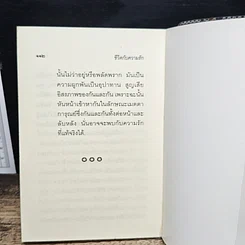 ชีวิตกับความรัก
นั้นไม่ว่าอยู่หรือพลัดพราก มันเป็น
ความผูกพันเป็นอุปาทาน สูญเสีย
อิสรภาพของกันและกัน เพราะฉะนั้น
หันหน้าเข้าหากันในลักษณะเมตตา
การุณย์ซึ่งกันและกันทั้งต่อหน้าและ
ลับหลัง นั่นอาจจะพบกับความรัก
ที่แท้จริงได้